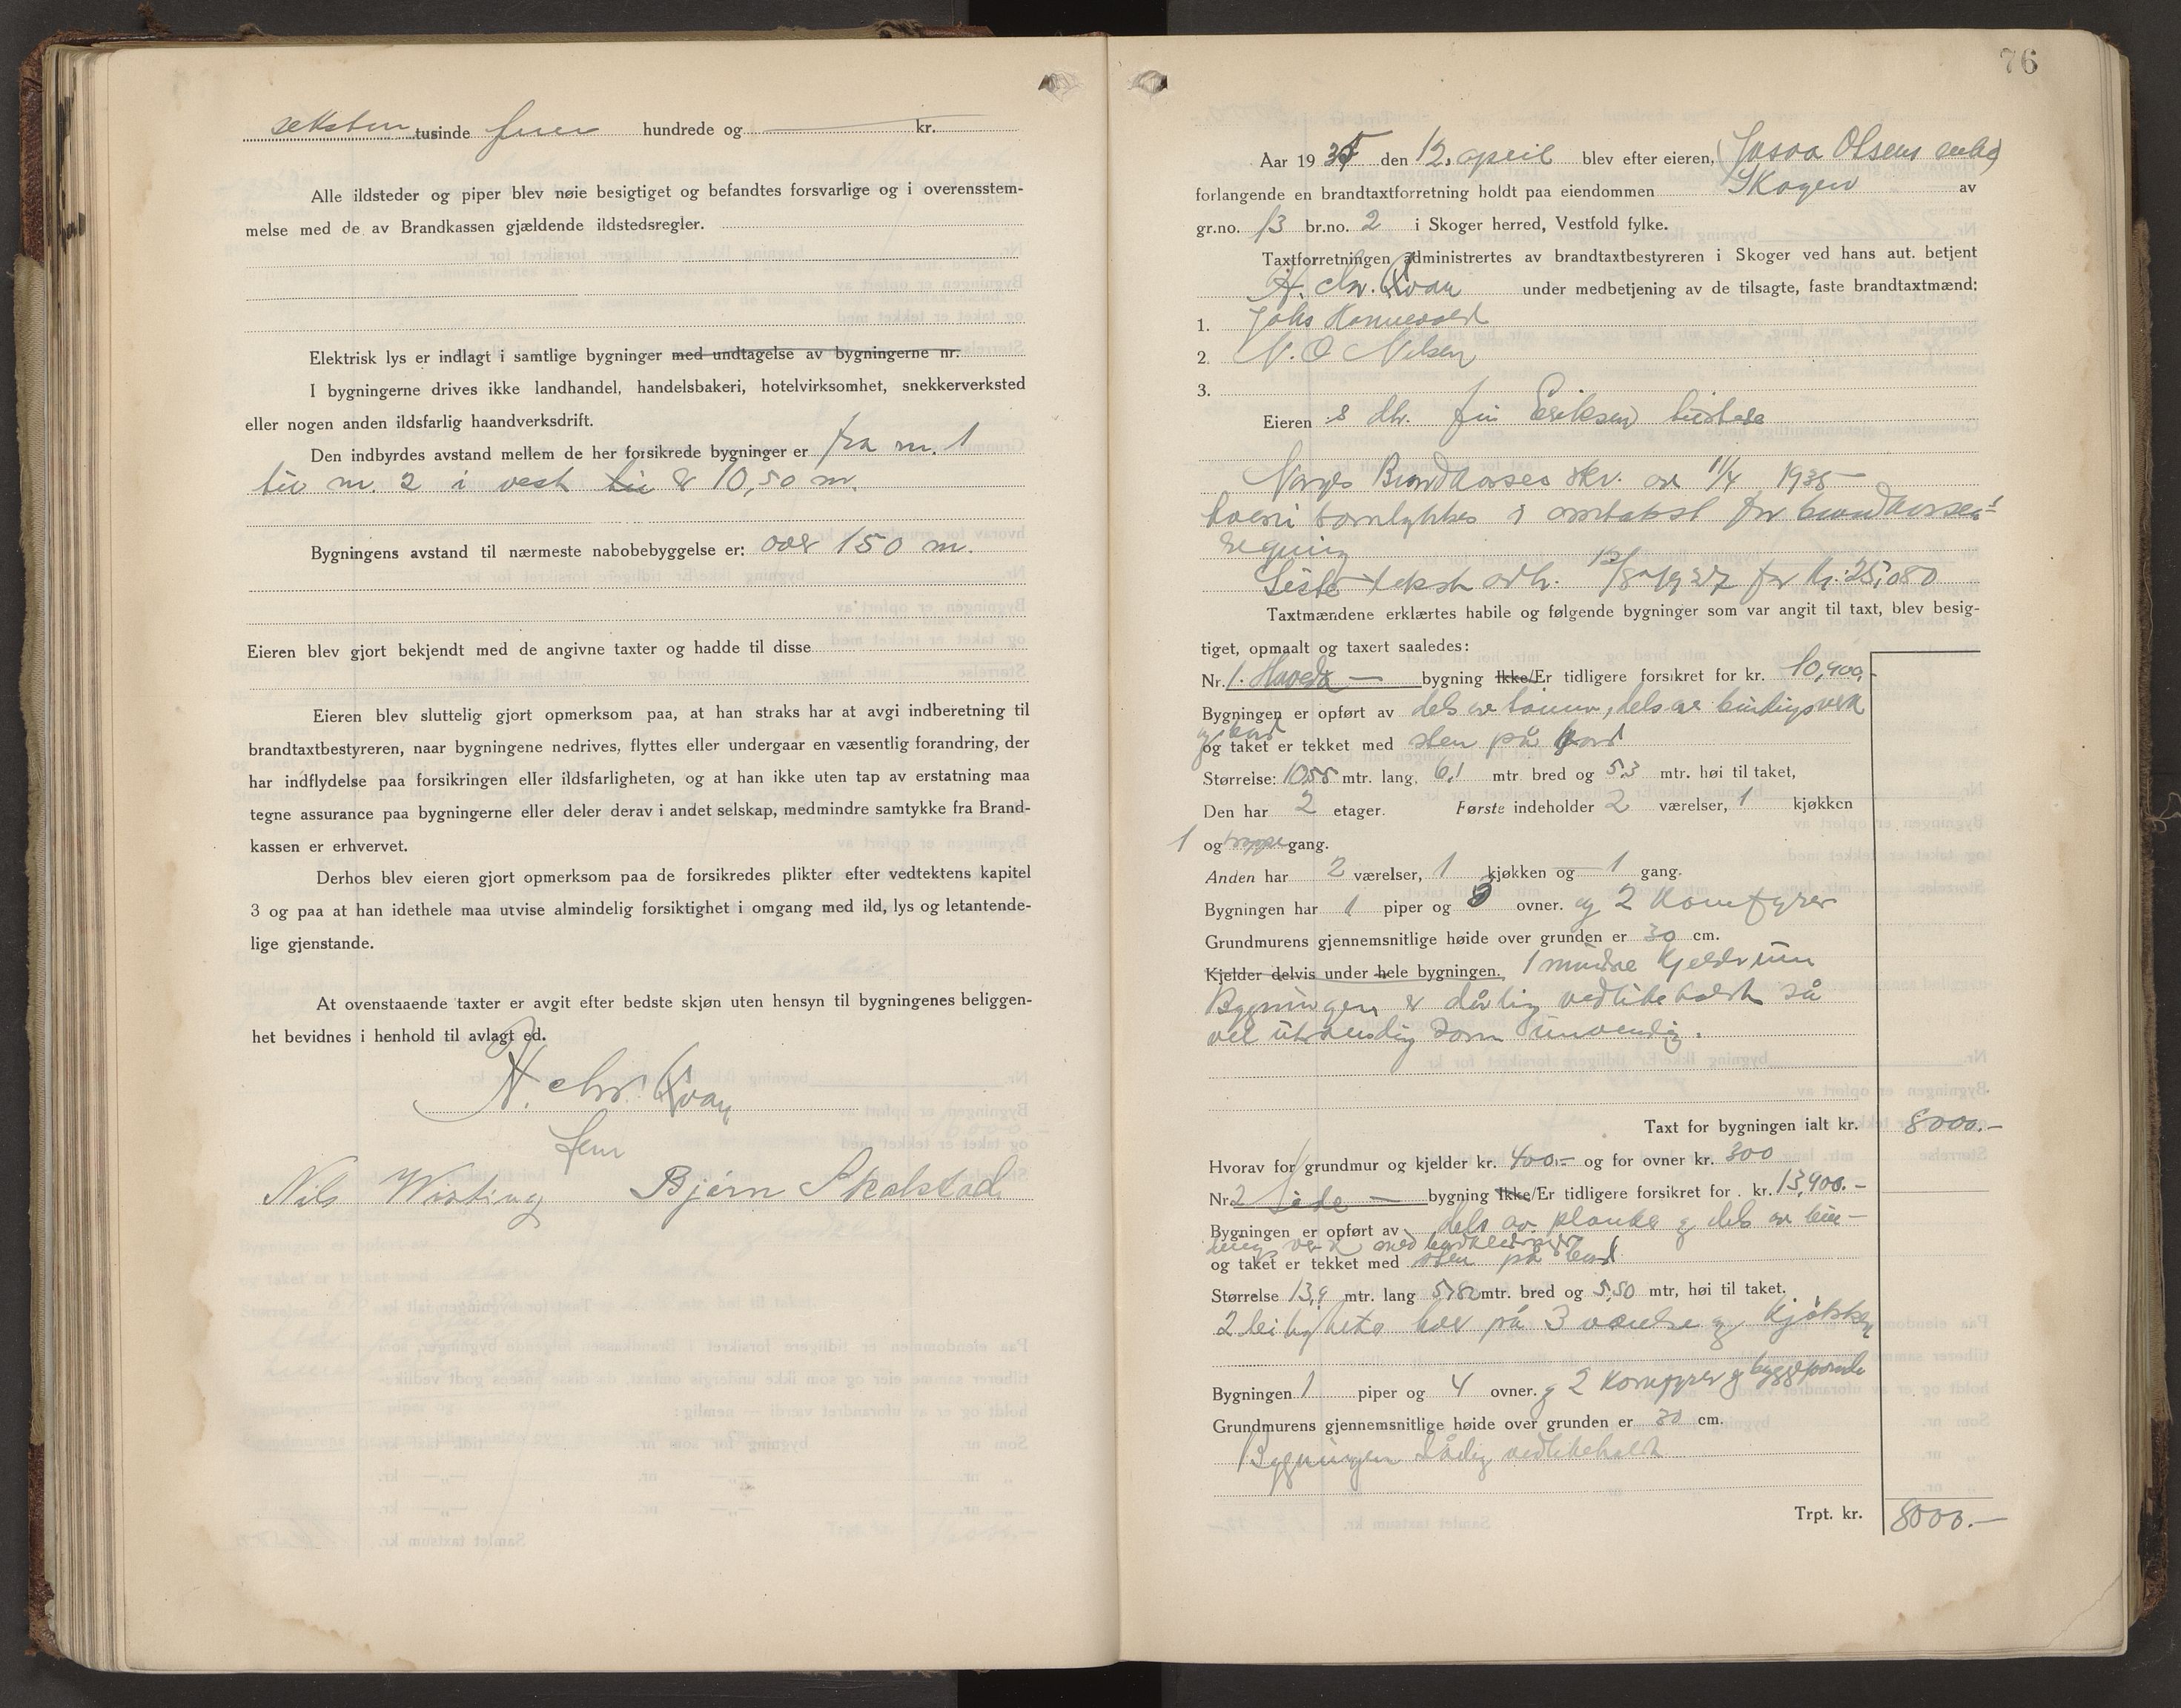 seksten tusinde fire hundrede og — kr.
Alle ildsteder og piper blev nøie besigtiget og befandtes forsvarlige og i overensstem-
melse med de av Brandkassen gjældende ildstedsregler.
Elektrisk lys er indlagt i samtlige bygninger med undtagelse av bygningerne nr.
I bygningerne drives ikke landhandel, handelsbakeri, hotelvirksomhet, snekkerverksted
eller nogen anden ildsfarlig haandverksdrift.
Den indbyrdes avstand mellem de her forsikrede bygninger er fra nr. 1
til nr. 2 i vest er 10,50 m.
Bygningens avstand til nærmeste nabobebyggelse er: over 150 m.
Eieren blev gjort bekjendt med de angivne taxter og hadde til disse
Eieren blev sluttelig gjort opmerksom paa, at han straks har at avgi indberetning til
brandtaxtbestyreren, naar bygningene nedrives, flyttes eller undergaar en væsentlig forandring, der
har indflydelse paa forsikringen eller ildsfarligheten, og at han ikke uten tap av erstatning maa
tegne assurance paa bygningerne eller deler derav i andet selskap, medmindre samtykke fra Brand-
kassen er erhvervet.
Derhos blev eieren gjort opmerksom paa de forsikredes plikter efter vedtektens kapitel
3 og paa at han idethele maa utvise almindelig forsiktighet i omgang med ild, lys og letantende-
lige gjenstande.
At ovenstaaende taxter er avgit efter bedste skjøn uten hensyn til bygningenes beliggen-
het bevidnes i henhold til avlagt ed.
N. Chr. Qvan
fem
Nils Bjørn Skalstad
76
Aar 1935 den 12. april blev efter eieren, (Josva Olsens enke)
forlangende en brandtaxtforretning holdt paa eiendommen Skogen av
gr.no. 13 br.no. 2 i Skoger herred, Vestfold fylke.
Taxtforretningen administrertes av brandtaxtbestyreren i Skoger ved hans aut. betjent
N. Chr. Qvan under medbetjening av de tilsagte, faste brandtaxtmænd:
1. Johs Hannevold
2. N. O Nilsen
3.
Eieren s Eriksen tilstede
Norges Brandkasses skr. av 11/4 1935
hvori samtykkes i omtakst for brandkassens
regning
Siste takst avh. 1927 for kr. 25,080
Taxtmændene erklærtes habile og følgende bygninger som var angit til taxt, blev besig-
tiget, opmaalt og taxert saaledes:
Nr. 1. Hoved — bygning Ikke/Er tidligere forsikret for kr. 10,900,-
Bygningen er opført av dels av tømmer, dels av bindingsverk
og bord
og taket er tekket med sten på bord
Størrelse: 10,55 mtr. lang, 6,1 mtr. bred og 5,3 mtr. høi til taket,
Den har 2 etager. Første indeholder 2 værelser, 1 kjøkken
1 og trappegang.
Anden har 2 værelser, 1 kjøkken og 1 gang.
Bygningen har 1 piper og 3 ovner. og 2 Komfyrer
Grundmurens gjennemsnitlige høide over grunden er 30 cm.
Kjelder delvis under hele bygningen. 1 mindre Kjelderrum
Bygningen er dårlig vedlikeholdt så
vel utvendig som innvendig.
Taxt for bygningen ialt kr. 8000.—
Hvorav for grundmur og kjelder kr. 400.— og for ovner kr. 300
Nr. 2 Side — bygning Ikke/Er tidligere forsikret for kr. 13,900.—
Bygningen er opført av dels av planke og dels av bin-
dingsverk med bordkledning
og taket er tekket med sten på bord
Størrelse 13,9 mtr. lang 5,82 mtr. bred og 5,50 mtr, høi til taket.
2 leiligheter hver på 3 værelse og kjøkken
Bygningen 1 piper og 4 ovner. og 2 Komfyrer og bryggepanne
Grundmurens gjennemsnitlige høide over grunden er 30 cm.
Bygningen dårlig vedlikeholdt
Trpt. kr. 8000.—